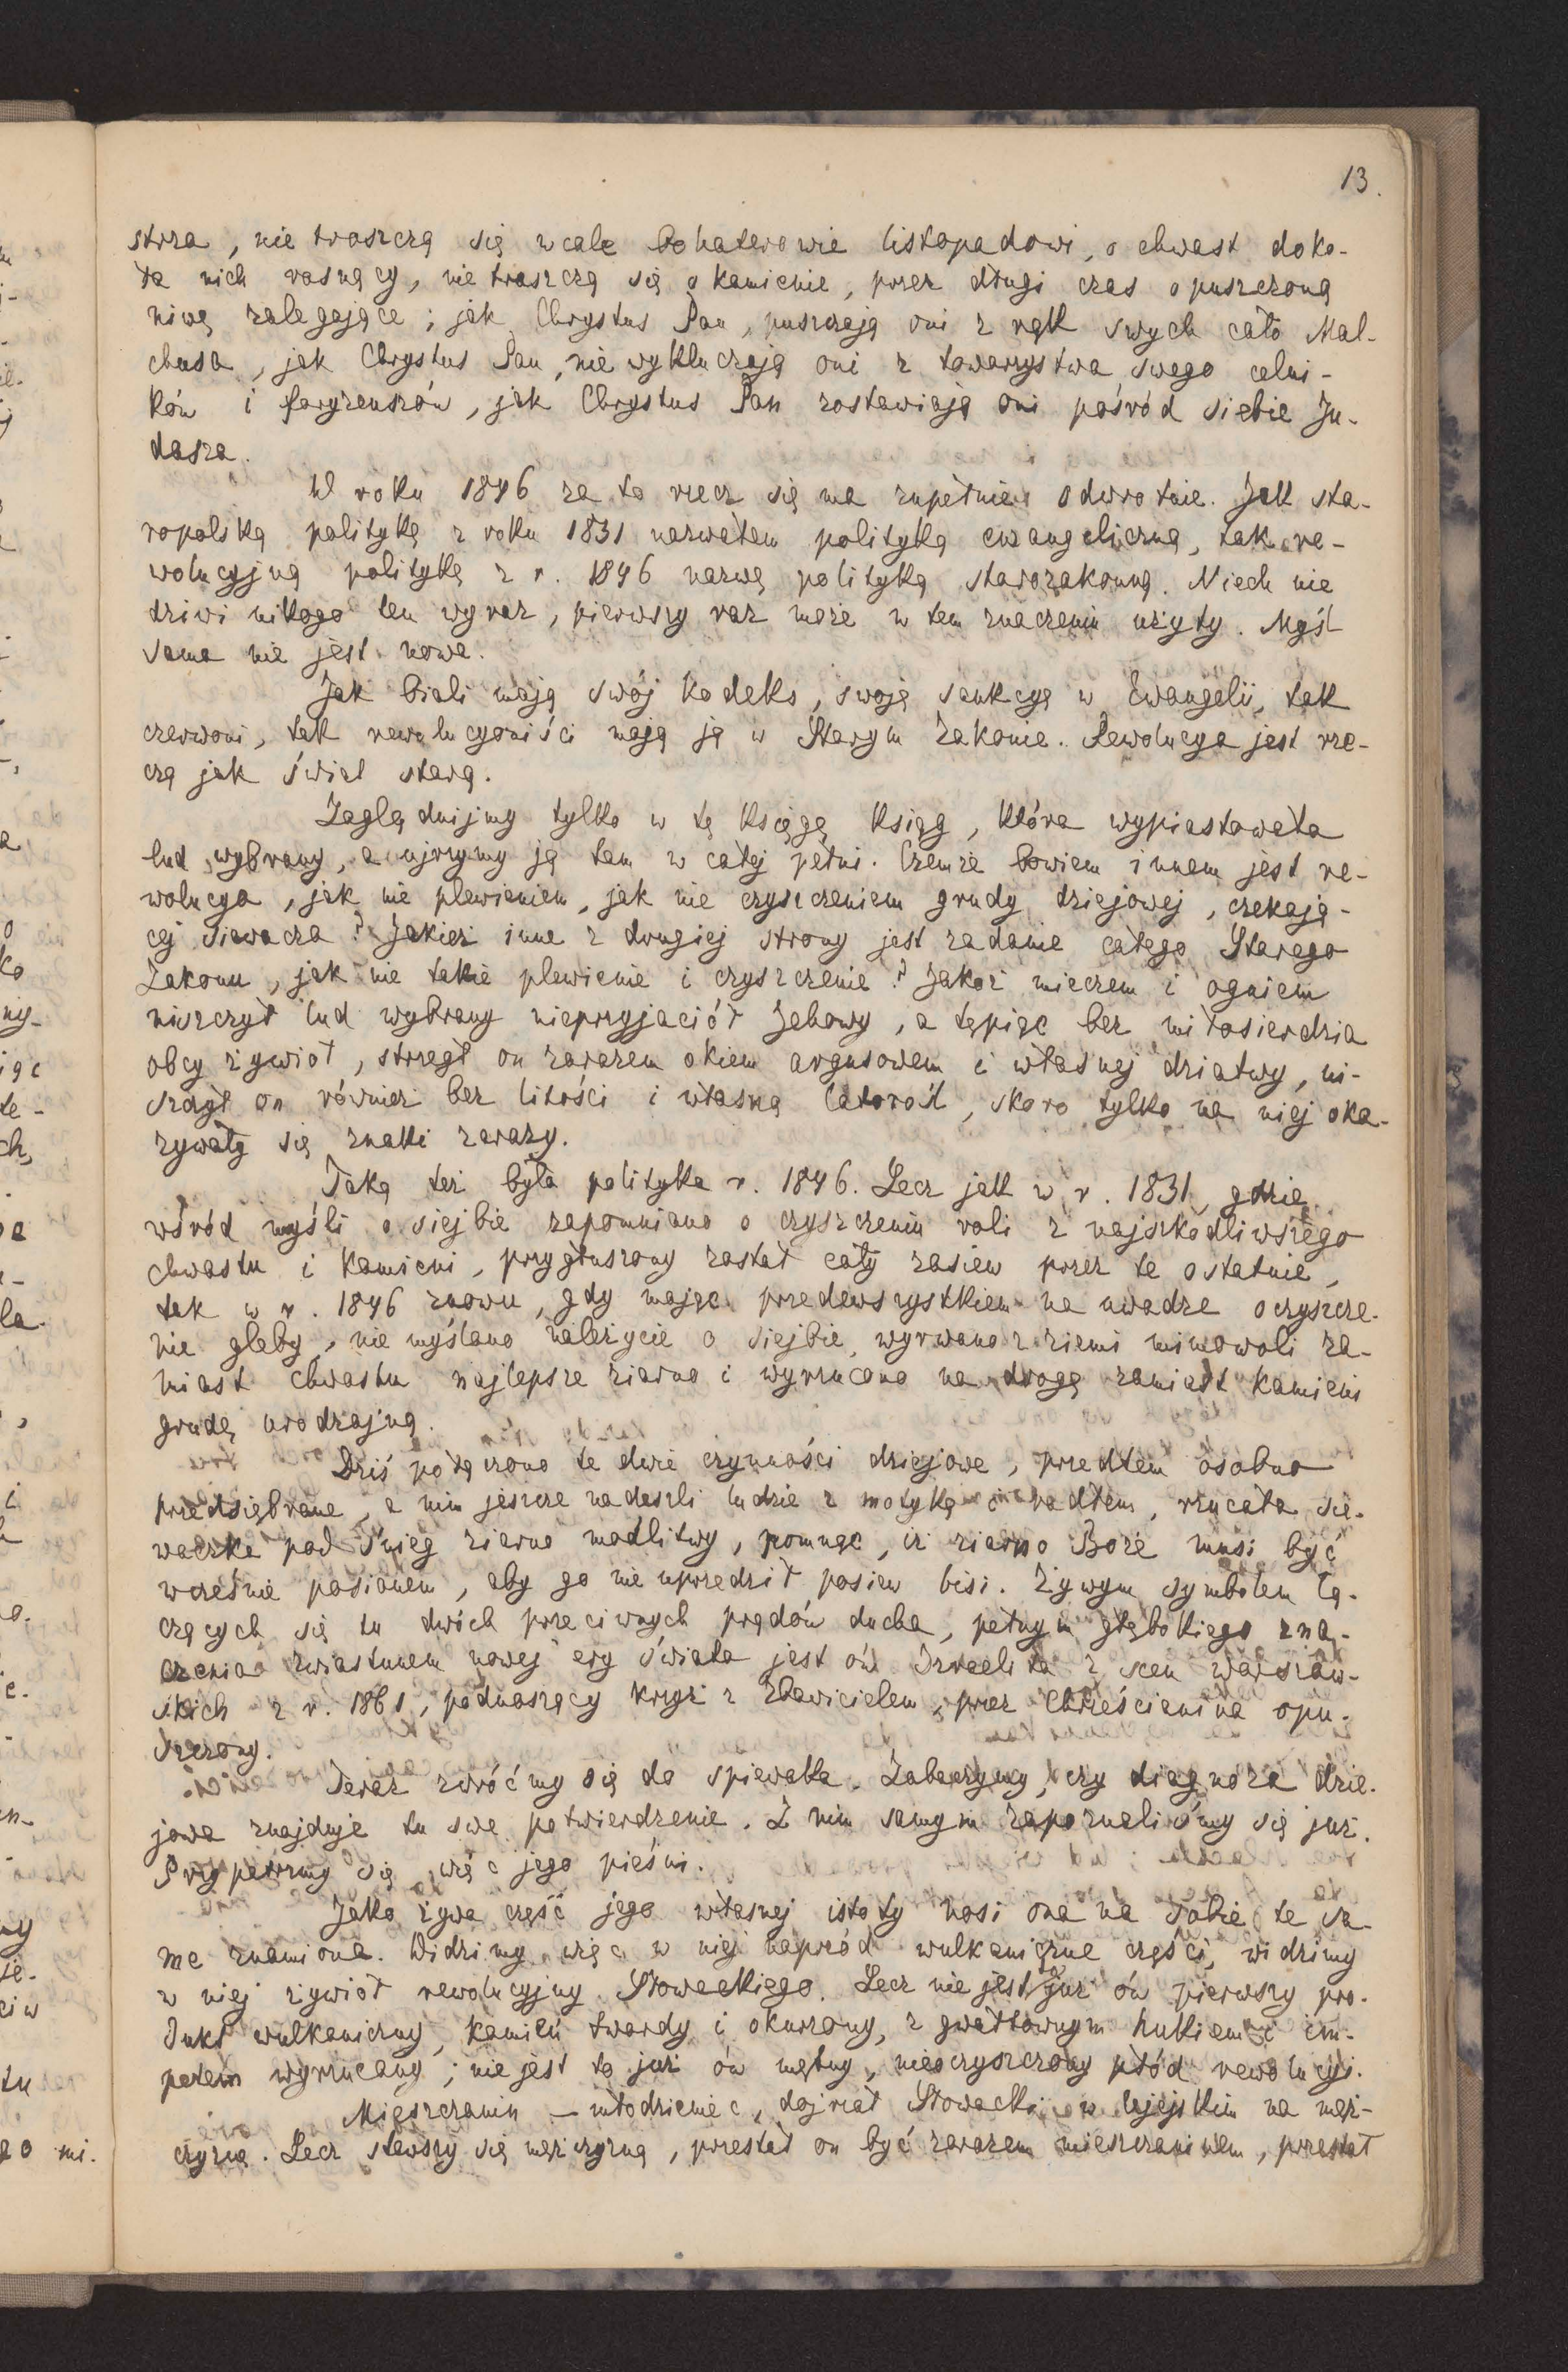 13.
strza, nie troszczą się wcale bohaterowie listopadowi, o chwast doko-
ła nich rosnący, nie troszczą się o kamienie, przez długi czas opuszczoną
niwę zalegające; jak Chrystus Pan, puszczają oni z rąk swych cało Mal-
chusa, jak Chrystus Pan, nie wykluczają oni z towarzystwa swego celni-
ków i faryzeuszów, jak Chrystus Pan zostawiają oni pośród siebie Ju-
dasza.
W roku 1846 za to rzecz się ma zupełnie odwrotnie. Jak sta-
ropolską politykę z roku 1831 nazwałem polityką ewangeliczną, tak re-
wolucyjną politykę z r. 1846 nazwę polityką starozakonną. Niech nie
dziwi nikogo ten wyraz, pierwszy raz może w tem znaczeniu użyty. Myśl
sama nie jest nowa.
Jak biali mają swój kodeks, swoję sankcyę w Ewangelii, tak
czerwoni, tak rewolucyoniści mają ją w Starym Zakonie. Rewolucya jest rze-
czą jak świat starą.
Zaglądnijmy tylko w tę księgę ksiąg, która wypiastowała
lud wybrany, a ujrzymy ją tam w całej pełni. Czemże bowiem innem jest re-
wolucya, jak nie plewieniem, jak nie czyszczeniem grudy dziejowej, czekają-
cej siewacza? Jakież inne z drugiej strony jest zadanie całego Starego
Zakonu, jak nie takie plewienie i czyszczenie? Jakoż mieczem i ogniem
niszczył lud wybrany nieprzyjaciół Jehowy, a tępiąc bez miłosierdzia
obcy żywioł, strzegł on zarazem okiem argusowem i własnej dziatwy, ni-
szczył on również bez litości i własną latorośl, skoro tylko na niej oka-
zywały się znaki zarazy.
Taką też była polityka r. 1846. Lecz jak w r. 1831, gdzie
wśród myśli o siejbie zapomniano o czyszczeniu roli z najszkodliwszego
chwastu i kamieni, przygłuszony został cały zasiew przez te ostatnie,
tak w r. 1846 znowu, gdy mając przedewszystkiem na uwadze oczyszcze-
nie gleby, nie myślano należycie o siejbie, wyrwano z ziemi mimowoli za-
miast chwastu najlepsze ziarno i wyrzucono na drogę zamiast kamieni
grudę urodzajną.
Dziś połączono te dwie czynności dziejowe, przedtem osobno
przedsiębrane, a nim jeszcze nadeszli ludzie z motyką i radłem, rzucała sie-
waczka pod śnieg ziarno modlitwy, pomnąc, iż ziarno Boże musi być
wcześnie posianem, aby go nie uprzedził posiew bisi. Żywym symbolem łą-
czących się tu dwóch przeciwnych prądów ducha, pełnym głębokiego zna-
czenia zwiastunem nowej ery świata jest ów Izraelita z scen warszaw-
skich z r. 1861, podnoszący krzyż z Zbawicielem, przez Chrześcianina opu-
szczony.
Teraz zwróćmy się do śpiewaka. Zobaczymy, czy diagnoza dzie-
jowa znajduje tu swe potwierdzenie. Z nim samym zapoznaliśmy się już.
Przypatrzmy się więc jego pieśni.
Jako żywa część jego własnej istoty nosi ona na sobie te sa-
me znamiona. Widzimy więc w niej naprzód wulkaniczne części, widzimy
w niej żywioł rewolucyjny Słowackiego. Lecz nie jest to już ów pierwszy pro-
dukt wulkaniczny, kamień twardy i okurzony, z gwałtownym hukiem i im-
petem wyrzucany; nie jest to już ów mętny, nieoczyszczony płód rewolucyi.
Mieszczanin – młodzieniec, dojrzał Słowacki w lejejskim na męż-
czyznę. Lecz stawszy się mężczyzną, przestał on być zarazem mieszczaninem, przestał